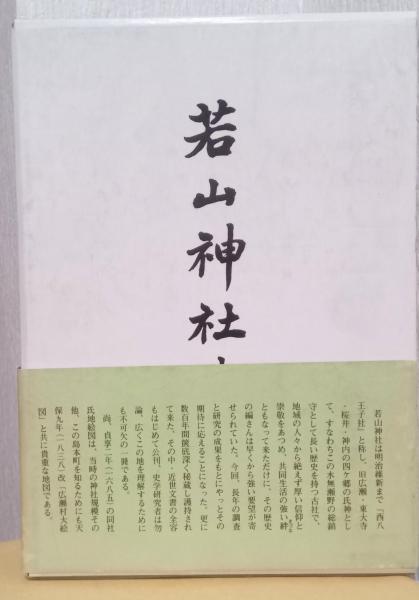 若山神社
若山神社は明治維新まで「西八
王子社」と称し、旧広瀬・東大寺
・桜井・神内の四ケ郷の氏神とし
て、すなわちこの水無瀬野の総鎮
守として長い歴史を持つ古社で、
地域の人々から絶えず厚い信仰と
崇敬をあつめ、共同生活の強い絆
ともなって来ただけに、その歴史
の編さんは早くから強い要望が寄
せられていた。今回、長年の調査
と研究の成果をもとにやっとその
期待に応えることになった。更に
数百年間筐底深く秘蔵し護持され
て来た、その中・近世文書の全容
もはじめて公刊、史学研究者は勿
論、広くこの地を理解するために
も不可欠の一冊である。
尚、貞享二年(一六八五)の同社
氏地絵図は、当時の神社規模その
他、この島本町を知るためにも天
保九年(一八三八)改「広瀬村大絵
図」と共に貴重な地図である。